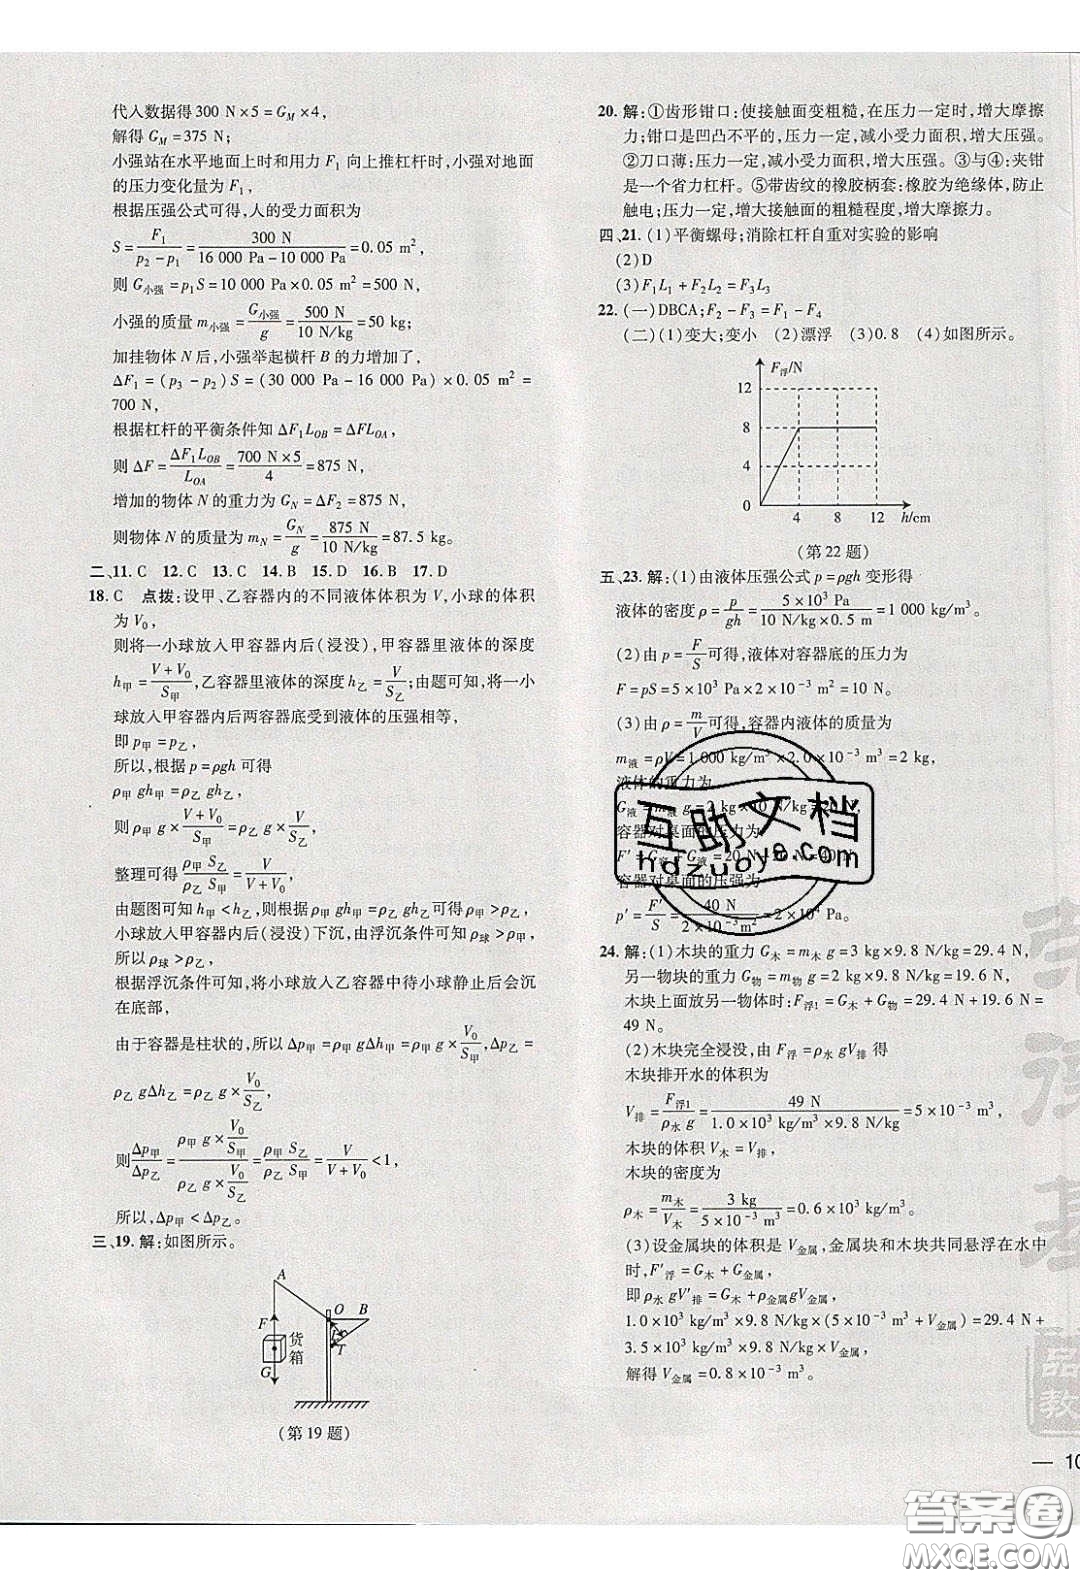 代入数据得300 N×5=G_M×4,
解得 G_M=375 N;
小强站在水平地面上时和用力 F₁ 向上推杠杆时,小强对地面
的压力变化量为 F₁,
根据压强公式可得,人的受力面积为
S=F₁/(p₂-p₁)=300 N/(16 000 Pa-10 000 Pa)=0.05 m²,
则 G小强=p₁S=10 000 Pa×0.05 m²=500 N,
小强的质量 m小强=G小强/g=500 N/(10 N/kg)=50 kg;
加挂物体 N 后,小强举起横杆 B 的力增加了,
ΔF₁=(p₃-p₂)S=(30 000 Pa-16 000 Pa)×0.05 m²=
700 N,
根据杠杆的平衡条件知 ΔF₁L_OB=ΔFL_OA,
则 ΔF=ΔF₁L_OB/L_OA=700 N×5/4=875 N,
增加的物体 N 的重力为 G_N=ΔF₂=875 N,
则物体 N 的质量为 m_N=G_N/g=875 N/(10 N/kg)=87.5 kg。
二、11. C 12. C 13. C 14. B 15. D 16. B 17. D
18. C 点拨:设甲、乙容器内的不同液体体积为 V,小球的体积
为 V₀,
则将一小球放入甲容器内后(浸没),甲容器里液体的深度
h甲=(V+V₀)/S甲,乙容器里液体的深度 h乙=V/S乙;由题可知,将一小
球放入甲容器内后两容器底受到液体的压强相等,
即 p甲=p乙,
所以,根据 p=ρgh 可得
ρ甲gh甲=ρ乙gh乙,
则 ρ甲g×(V+V₀)/S甲=ρ乙g×V/S乙,
整理可得 ρ甲S乙/ρ乙S甲=V/(V+V₀),
由题图可知 h甲<h乙,则根据 ρ甲gh甲=ρ乙gh乙可得 ρ甲>ρ乙,
小球放入甲容器内后(浸没)下沉,由浮沉条件可知 ρ球>ρ甲,
所以 ρ球>ρ乙,
根据浮沉条件可知,将小球放入乙容器待小球静止后会沉
在底部,
由于容器是柱状的,所以 Δp甲=ρ甲gΔh甲=ρ甲g×V₀/S甲,Δp乙=
ρ乙gΔh乙=ρ乙g×V₀/S乙,
则Δp甲/Δp乙=(ρ甲g×V₀/S甲)/(ρ乙g×V₀/S乙)=ρ甲S乙/ρ乙S甲=V/(V+V₀)<1,
所以,Δp甲<Δp乙。
三、19. 解:如图所示。
A
O B
F
货
箱
T
G
(第 19 题)
20. 解:①齿形钳口:使接触面变粗糙,在压力一定时,增大摩擦
力;钳口是凹凸不平的,压力一定,减小受力面积,增大压强。
②刀口薄;压力一定,减小受力面积,增大压强。③与④:夹钳
是一个省力杠杆。⑤带齿纹的橡胶柄套:橡胶为绝缘体,防止
触电;压力一定,增大接触面的粗糙程度,增大摩擦力。
四、21. (1)平衡螺母;消除杠杆自重对实验的影响
(2)D
(3)F₁L₁+F₂L₂=F₃L₃
22. (一)DBCA;F₂-F₃=F₁-F₄
(二)(1)变大;变小 (2)漂浮 (3)0.8 (4)如图所示。
F浮/N
12
8
4
0
4 8 12 h/cm
(第 22 题)
五、23. 解:(1)由液体压强公式 p=ρgh 变形得
液体的密度 ρ=p/gh=5×10³ Pa/(10 N/kg×0.5 m)=1 000 kg/m³。
(2)由 p=F/S可得,液体对容器底的压力为
F=pS=5×10³ Pa×2×10⁻³ m²=10 N。
(3)由 ρ=m/V可得,容器内液体的质量为
m液=ρV=1 000 kg/m³×2.0×10⁻³ m³=2 kg,
液体的重力为
G液=m液g=2 kg×10 N/kg=20 N,
容器对桌面的压力为
F′=G容+G液=20 N+20 N=40 N,
容器对桌面的压强为
p′=F′/S=40 N/(2×10⁻³ m²)=2×10⁴ Pa。
24. 解:(1)木块的重力 G木=m木g=3 kg×9.8 N/kg=29.4 N,
另一物块的重力 G物=m物g=2 kg×9.8 N/kg=19.6 N,
木块上面放另一物体时:F浮1=G木+G物=29.4 N+19.6 N=
49 N。
(2)木块完全浸没,由 F浮=ρ水gV排 得
木块排开水的体积为
V排=F浮1/ρ水g=49 N/(1.0×10³ kg/m³×9.8 N/kg)=5×10⁻³ m³,
木块的体积 V木=V排,
木块的密度为
ρ木=m木/V木=3 kg/(5×10⁻³ m³)=0.6×10³ kg/m³。
(3)设金属块的体积是 V金属,金属块和木块共同悬浮在水中
时,F′浮=G木+G金属,
即 ρ水gV′排=G木+ρ金属gV金属,
1.0×10³ kg/m³×9.8 N/kg×(5×10⁻³ m³+V金属)=29.4 N+
3.5×10³ kg/m³×9.8 N/kg×V金属,
解得 V金属=0.8×10⁻³ m³。
互助文档
hdzuoye.com
品
教
— 10
答案卷
MXQE.COM